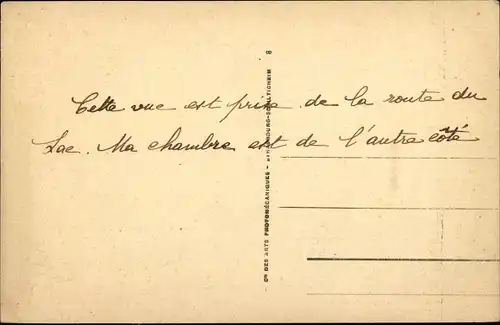 Cette vue est prise de la route du
Lac. Ma chambre est de l'autre côté
Cie DES ARTS PHOTOMÉCANIQUES - STRASBOURG-SCHILTIGHEIM 8